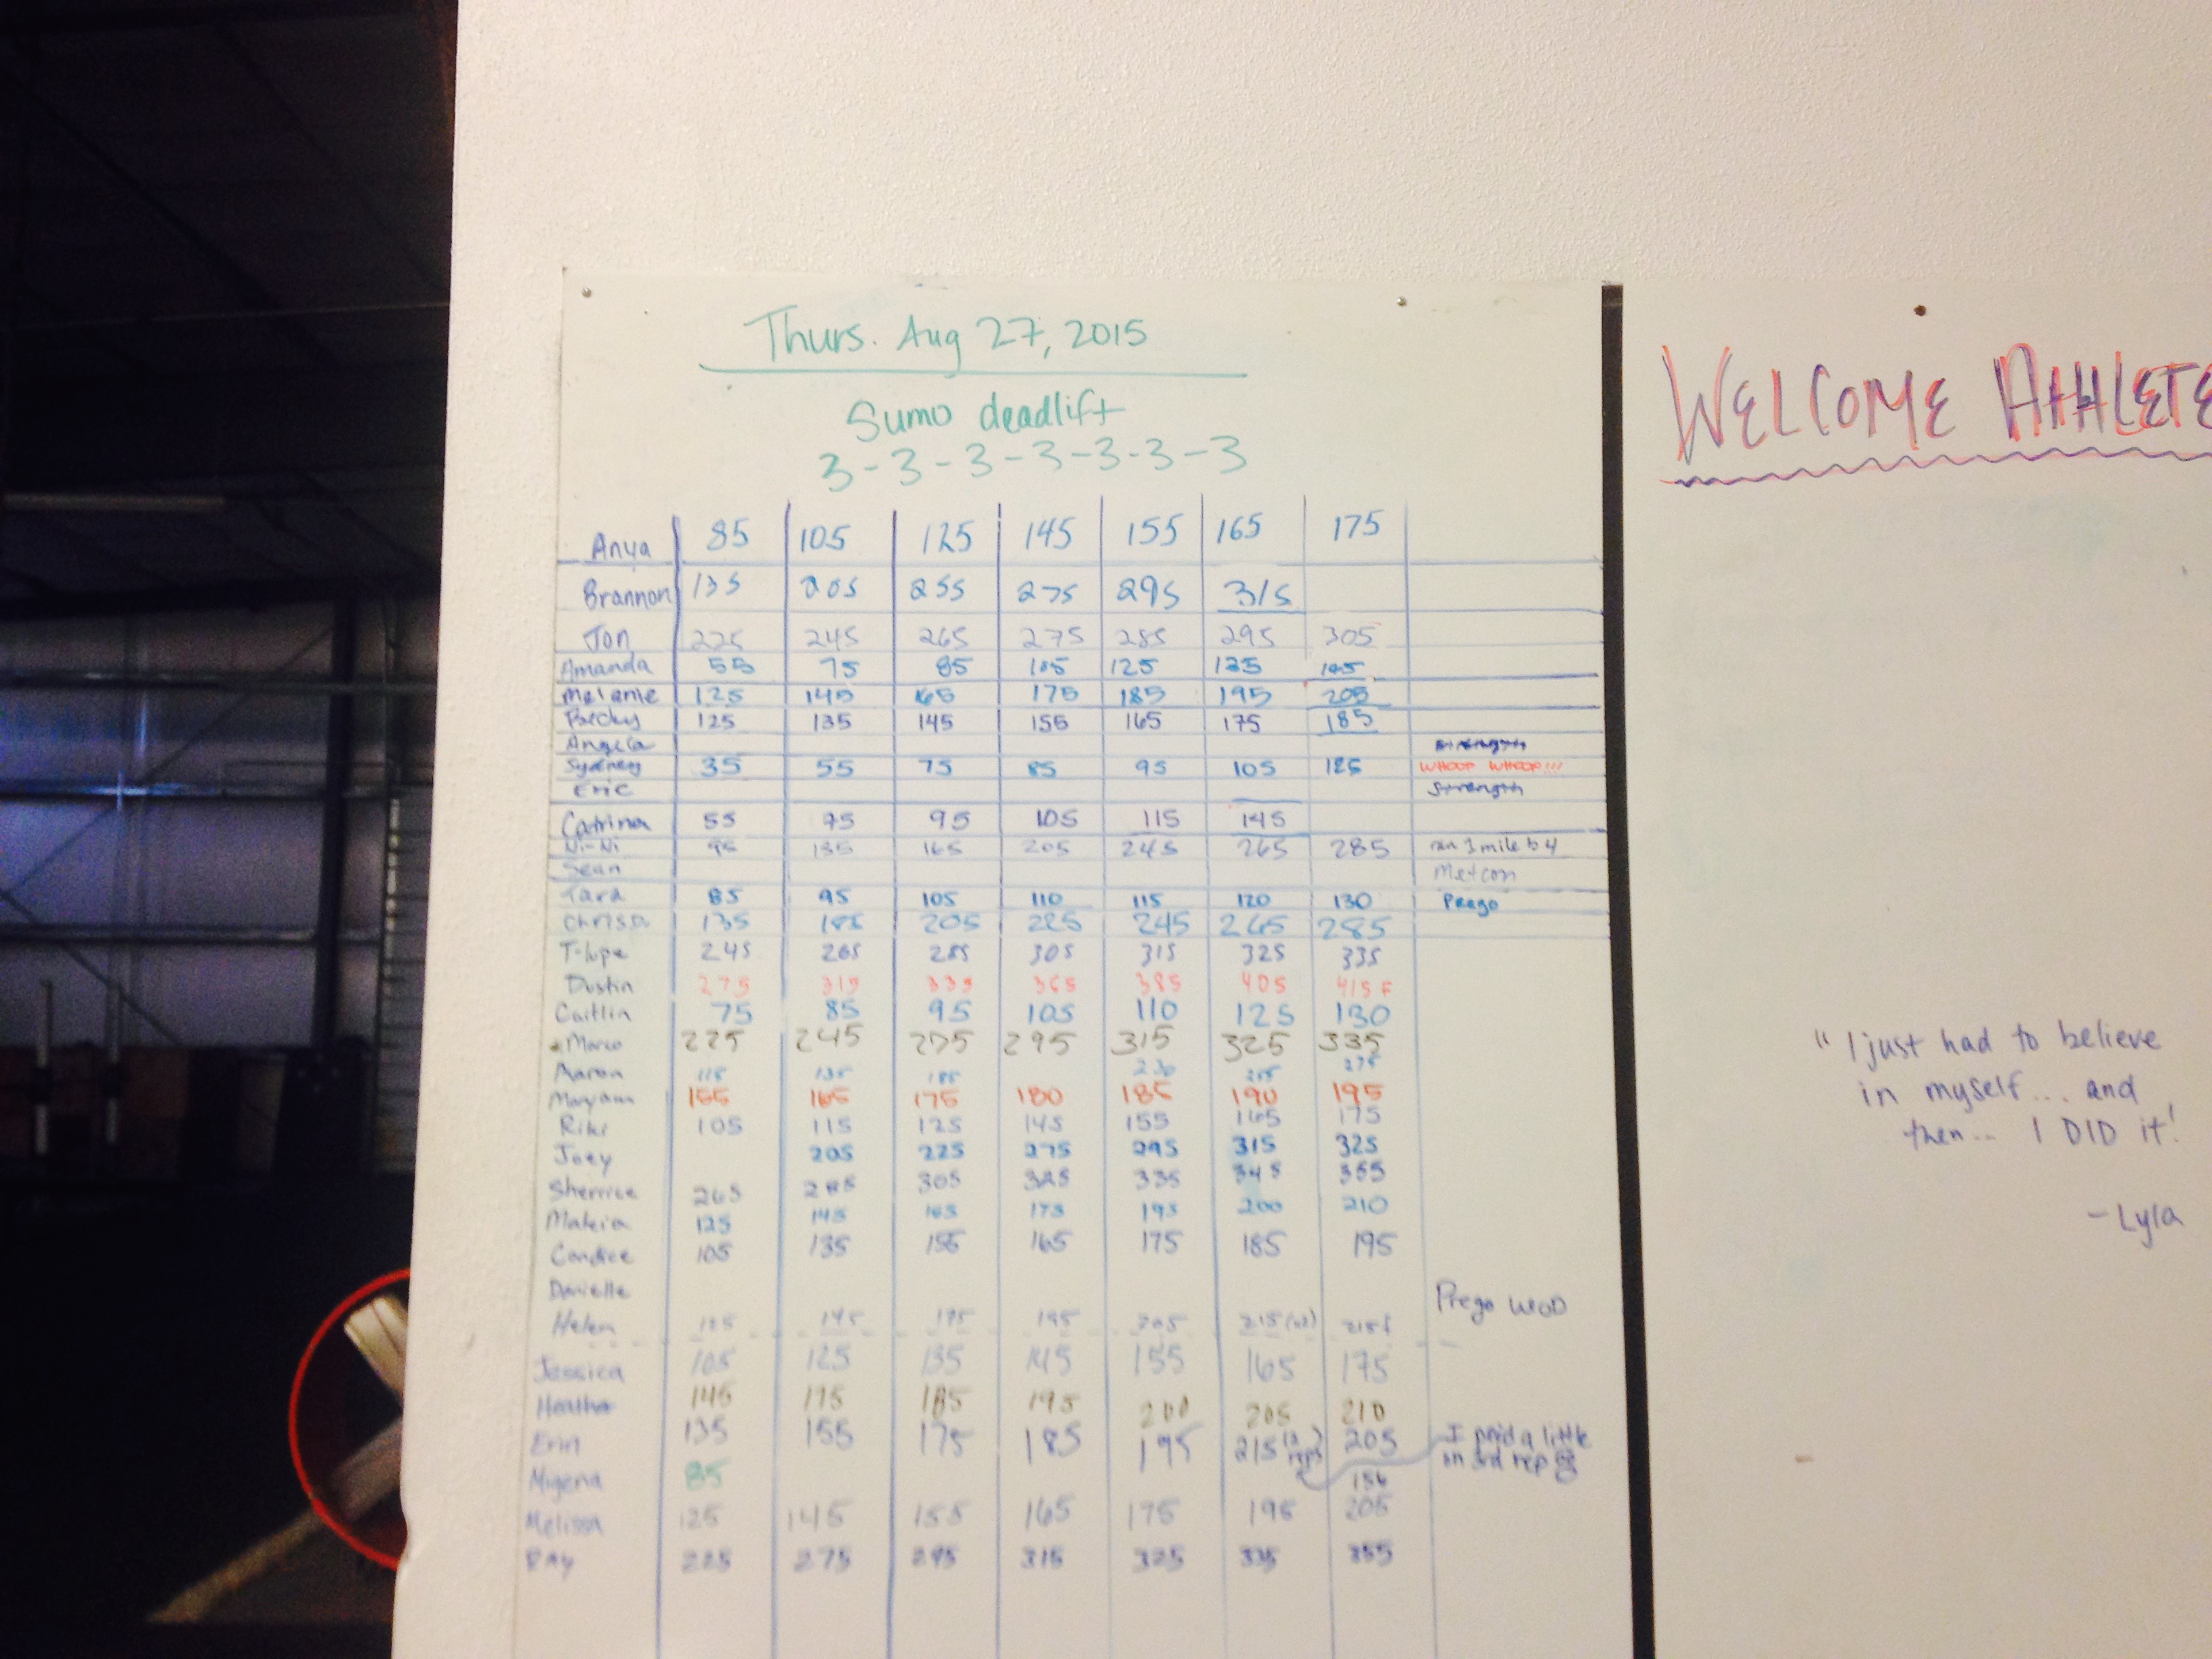 Thurs. Aug 27, 2015
Sumo deadlift
3-3-3-3-3-3-3
Anya 85 105 125 145 155 165 175
Brannon 135 205 255 275 295 315
Jon 225 245 265 275 285 295 305
Amanda 55 75 85 105 125 135 145
Melanie 125 145 165 175 185 195 205
Becky 125 135 145 155 165 175 185
Angela Strength
Sydney 35 55 75 85 95 105 125 WHOOP WHOOP!!!
Eric Strength
Catrina 55 75 95 105 115 145
Ni-Ni 95 135 165 205 245 265 285 ran 1 mile b4
Sean Metcon
Tara 85 95 105 110 115 120 130 Prego
Chrissy 135 185 205 225 245 265 285
T-lupe 245 265 285 305 315 325 335
Dustin 275 315 335 365 385 405 415 F
Caitlin 75 85 95 105 110 125 130
Marco 225 245 275 295 315 325 335
Aaron 115 135 185 275
Maryann 155 165 175 180 185 190 195
Riki 105 115 125 145 155 165 175
Joey 205 225 275 295 315 325
Sherrice 265 285 305 325 335 345 355
Makeia 125 145 165 175 195 200 210
Candice 105 135 155 165 175 185 195
Danielle Prego WOD
Helen 125 145 175 195 205 215 (x2) 215f
Jessica 105 125 135 145 155 165 175
Heather 145 175 185 195 200 205 210
Erin 135 155 175 185 195 215 (2 reps) 205 I pee'd a little
on 3rd rep
Migena 85
Melissa 125 145 155 165 175 195 205
Ray 225 275 295 315 325 335 355
WELCOME ATHLETE
"I just had to believe
in myself... and
then... I DID it!
-Lyla